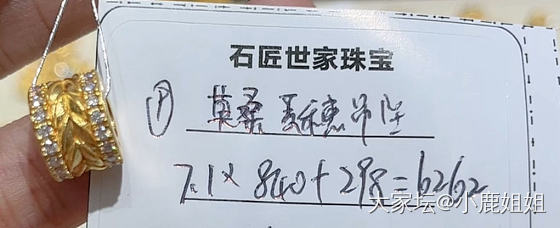 石匠世家珠宝
P 莫桑麦穗吊坠
7.1×840+298=6262
大家坛@小鹿姐姐